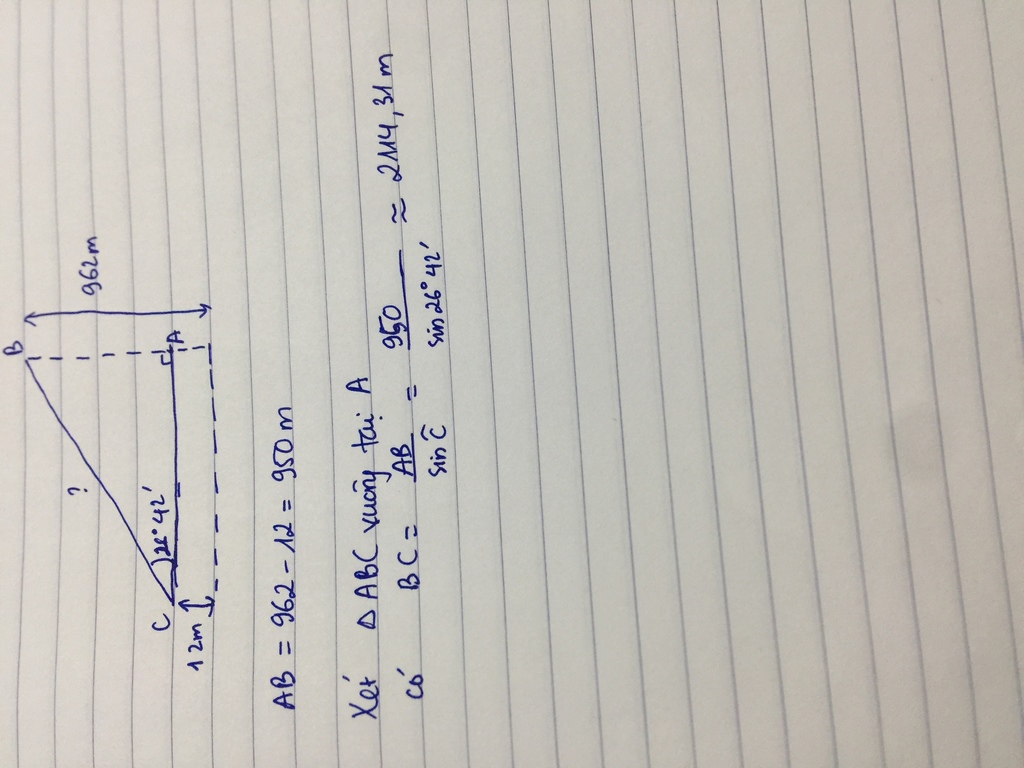 B
962m
?
C
26°42'
A
12m
AB = 962 - 12 = 950m
Xét Δ ABC vuông tại A
có BC = AB / sin Ĉ = 950 / sin 26°42' ≈ 2114,31m